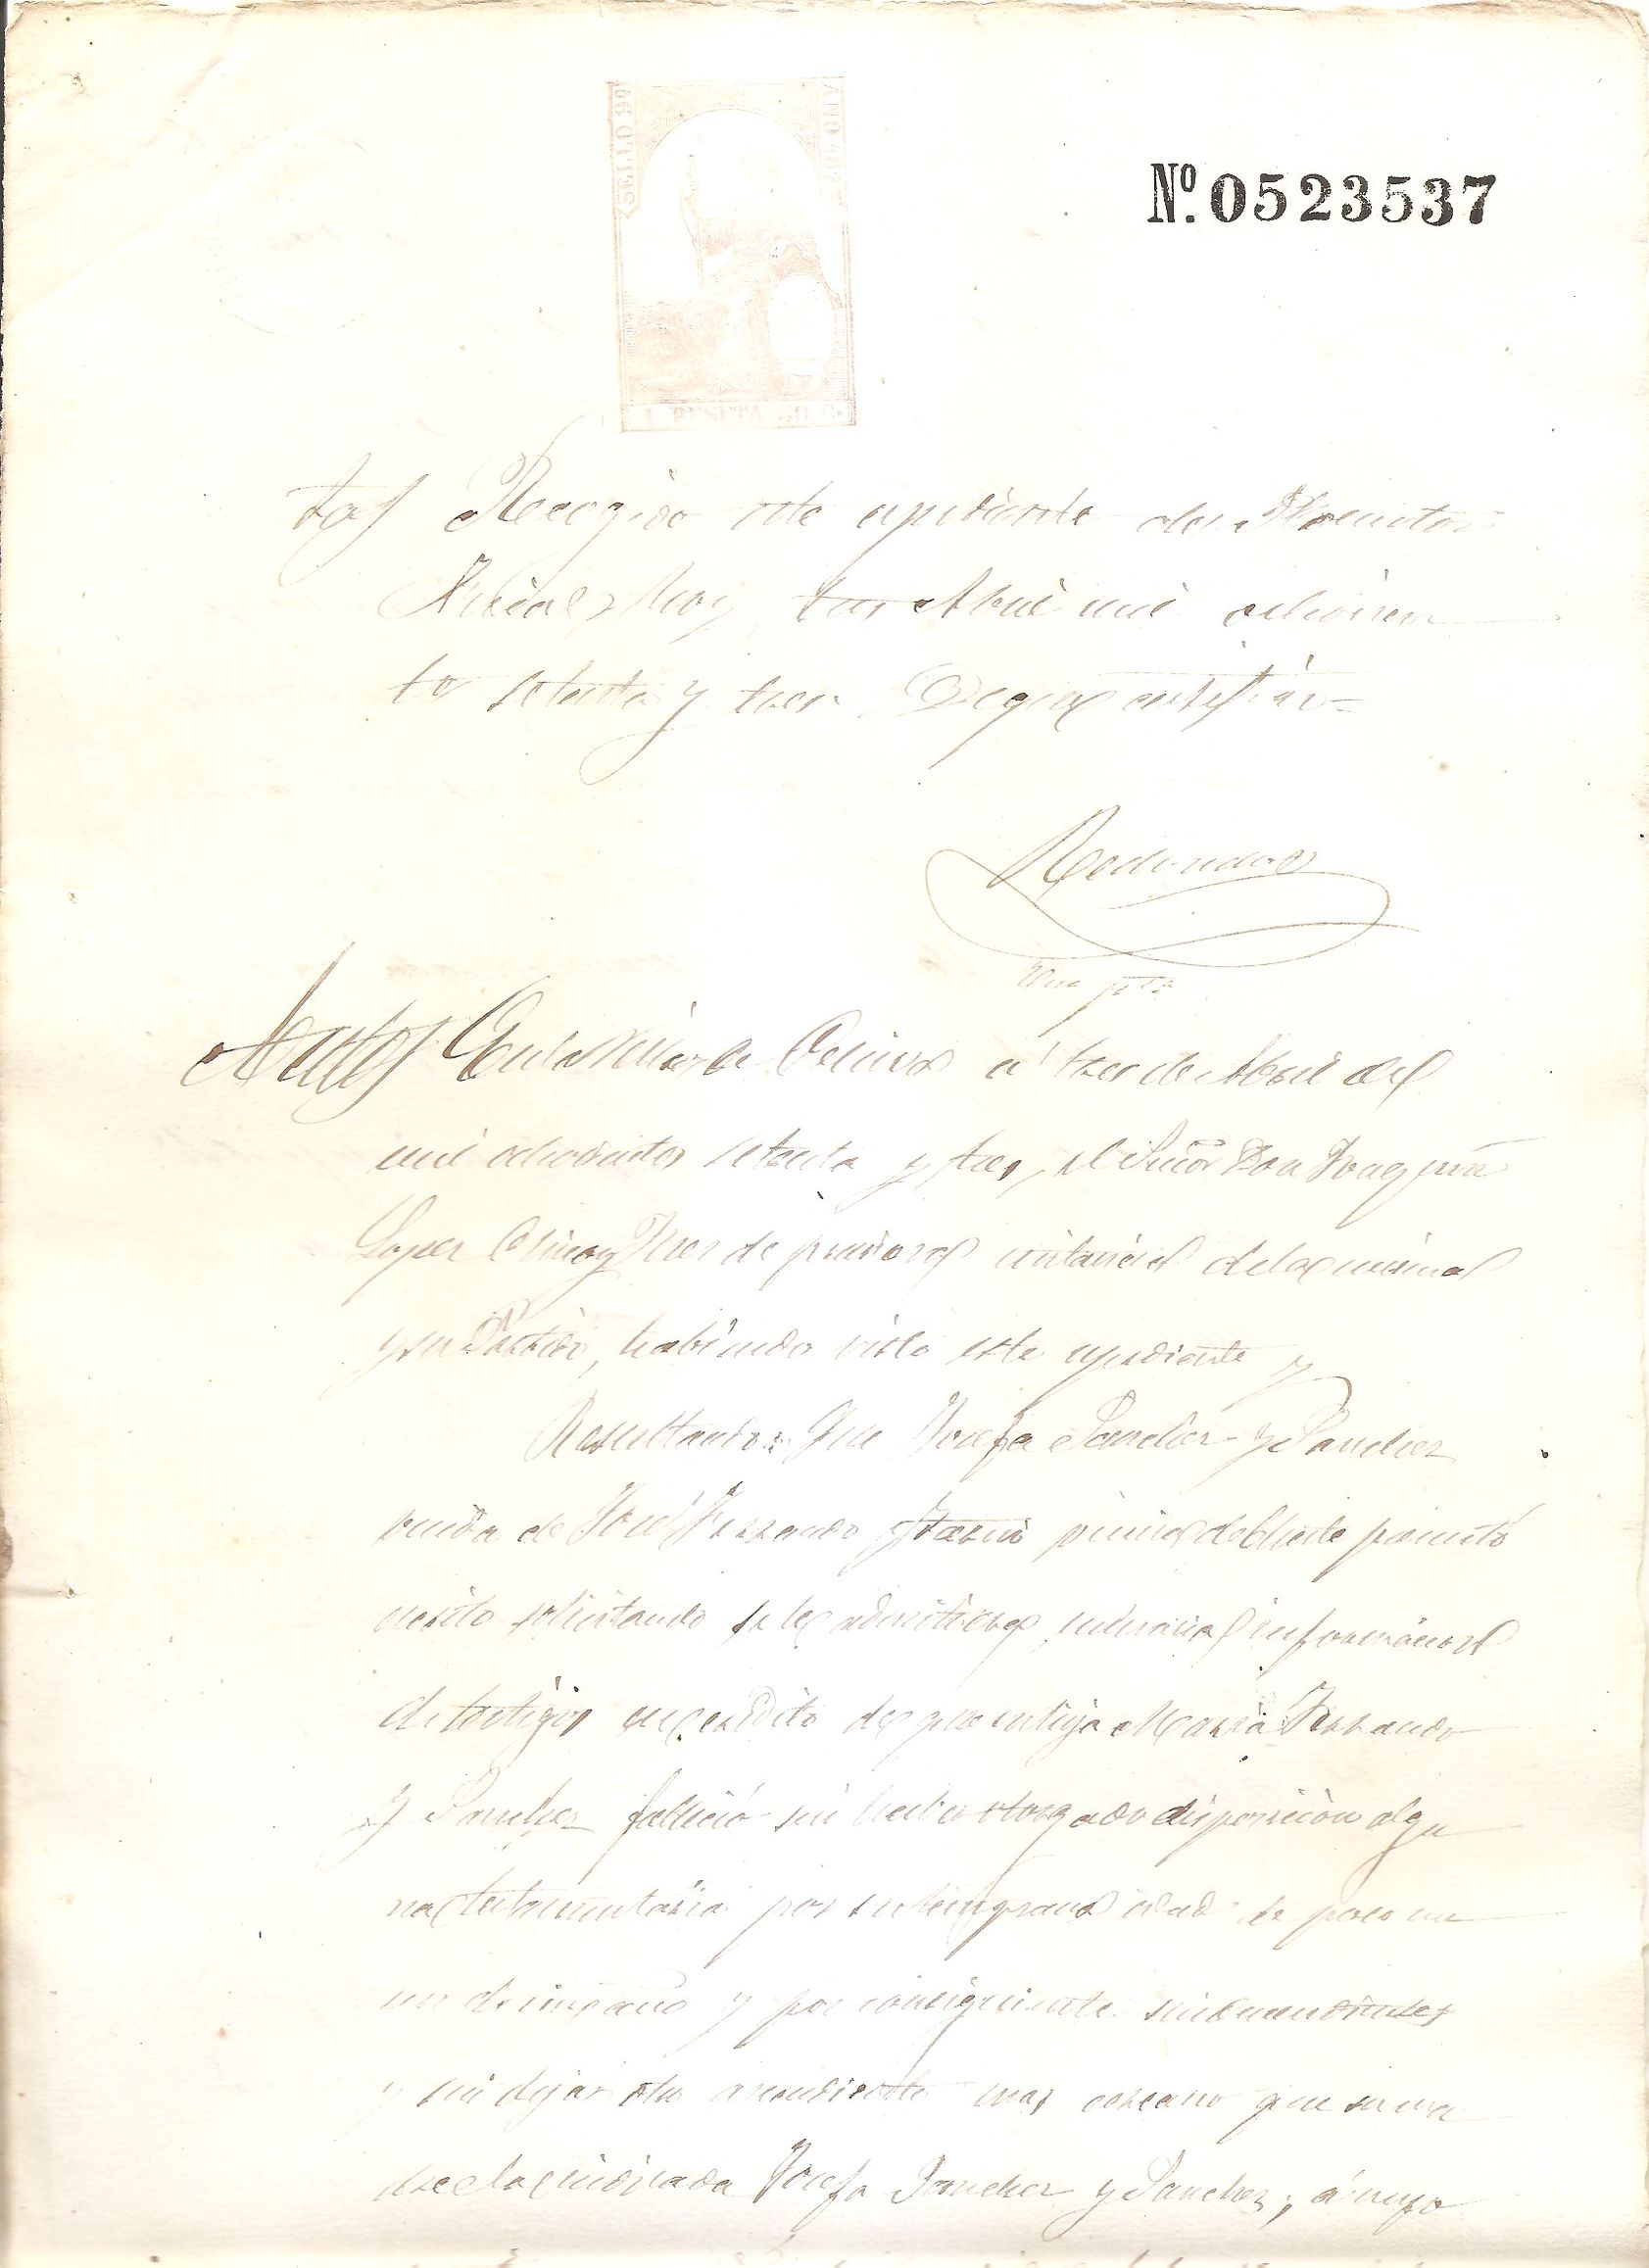 SELLO 9º
AÑO 187
1 PESETA 50 C.
Nº. 0523537
Recogido este espediente del Promotor
Fiscal, hoy tres Abril mil ochocien
tos setenta y tres. De que certifico=
Redondo
Una pta
Autos En la Villa de a tres de Abril de
mil ochocientos setenta y tres, el Señor Don Joaquin
Lopez Juez de primera instancia de la misma
y su Partido, habiendo visto este espediente y
Resultando: Que Josefa Sanchez y Sanchez
viuda de José Ferrando vecina de presentó
escrito solicitando se le admitiera sumaria informacion
de testigos en credito de que su hija Maria Ferrando
y Sanchez falleció sin haber otorgado disposicion algu
na testamentaria por su temprana edad de poco me
nos de un año y por consiguiente sin descendientes
y sin dejar otro ascendiente mas cercano que su ma
dre la indicada Josefa Sanchez y Sanchez; á cuyo